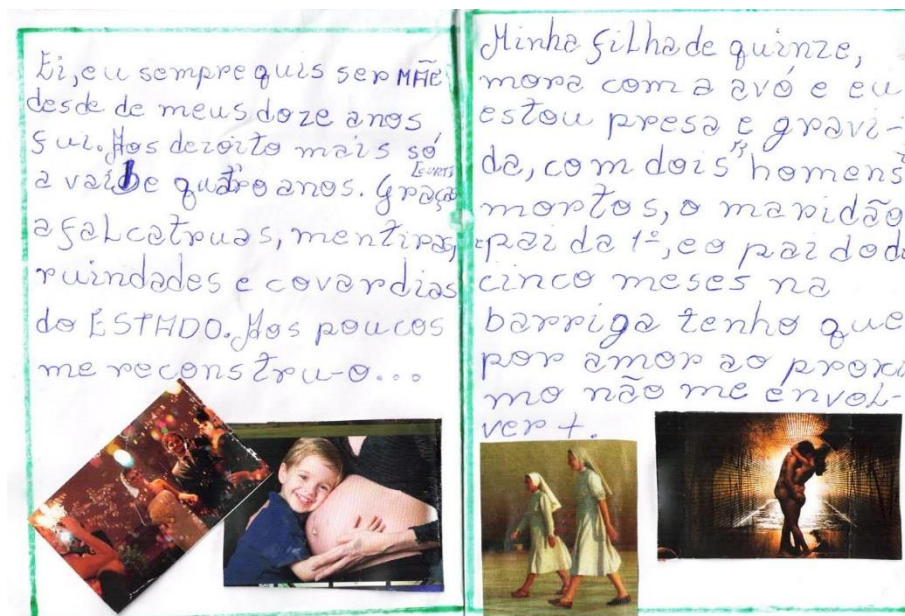 Ei, eu sempre quis ser MÃE
desde de meus doze anos
fui. Aos dezoito mais só
a vai de quatro anos. Graças
a falcatruas, mentiras,
ruindades e covardias
do ESTADO. Aos poucos
me reconstru-o...
Minha filha de quinze,
mora com a avó e eu
estou presa e gravi-
da, com dois homens
mortos, o maridão
pai da 1º, e o pai do de
cinco meses na
barriga tenho que
por amor ao proxi
mo não me envol-
ver +.